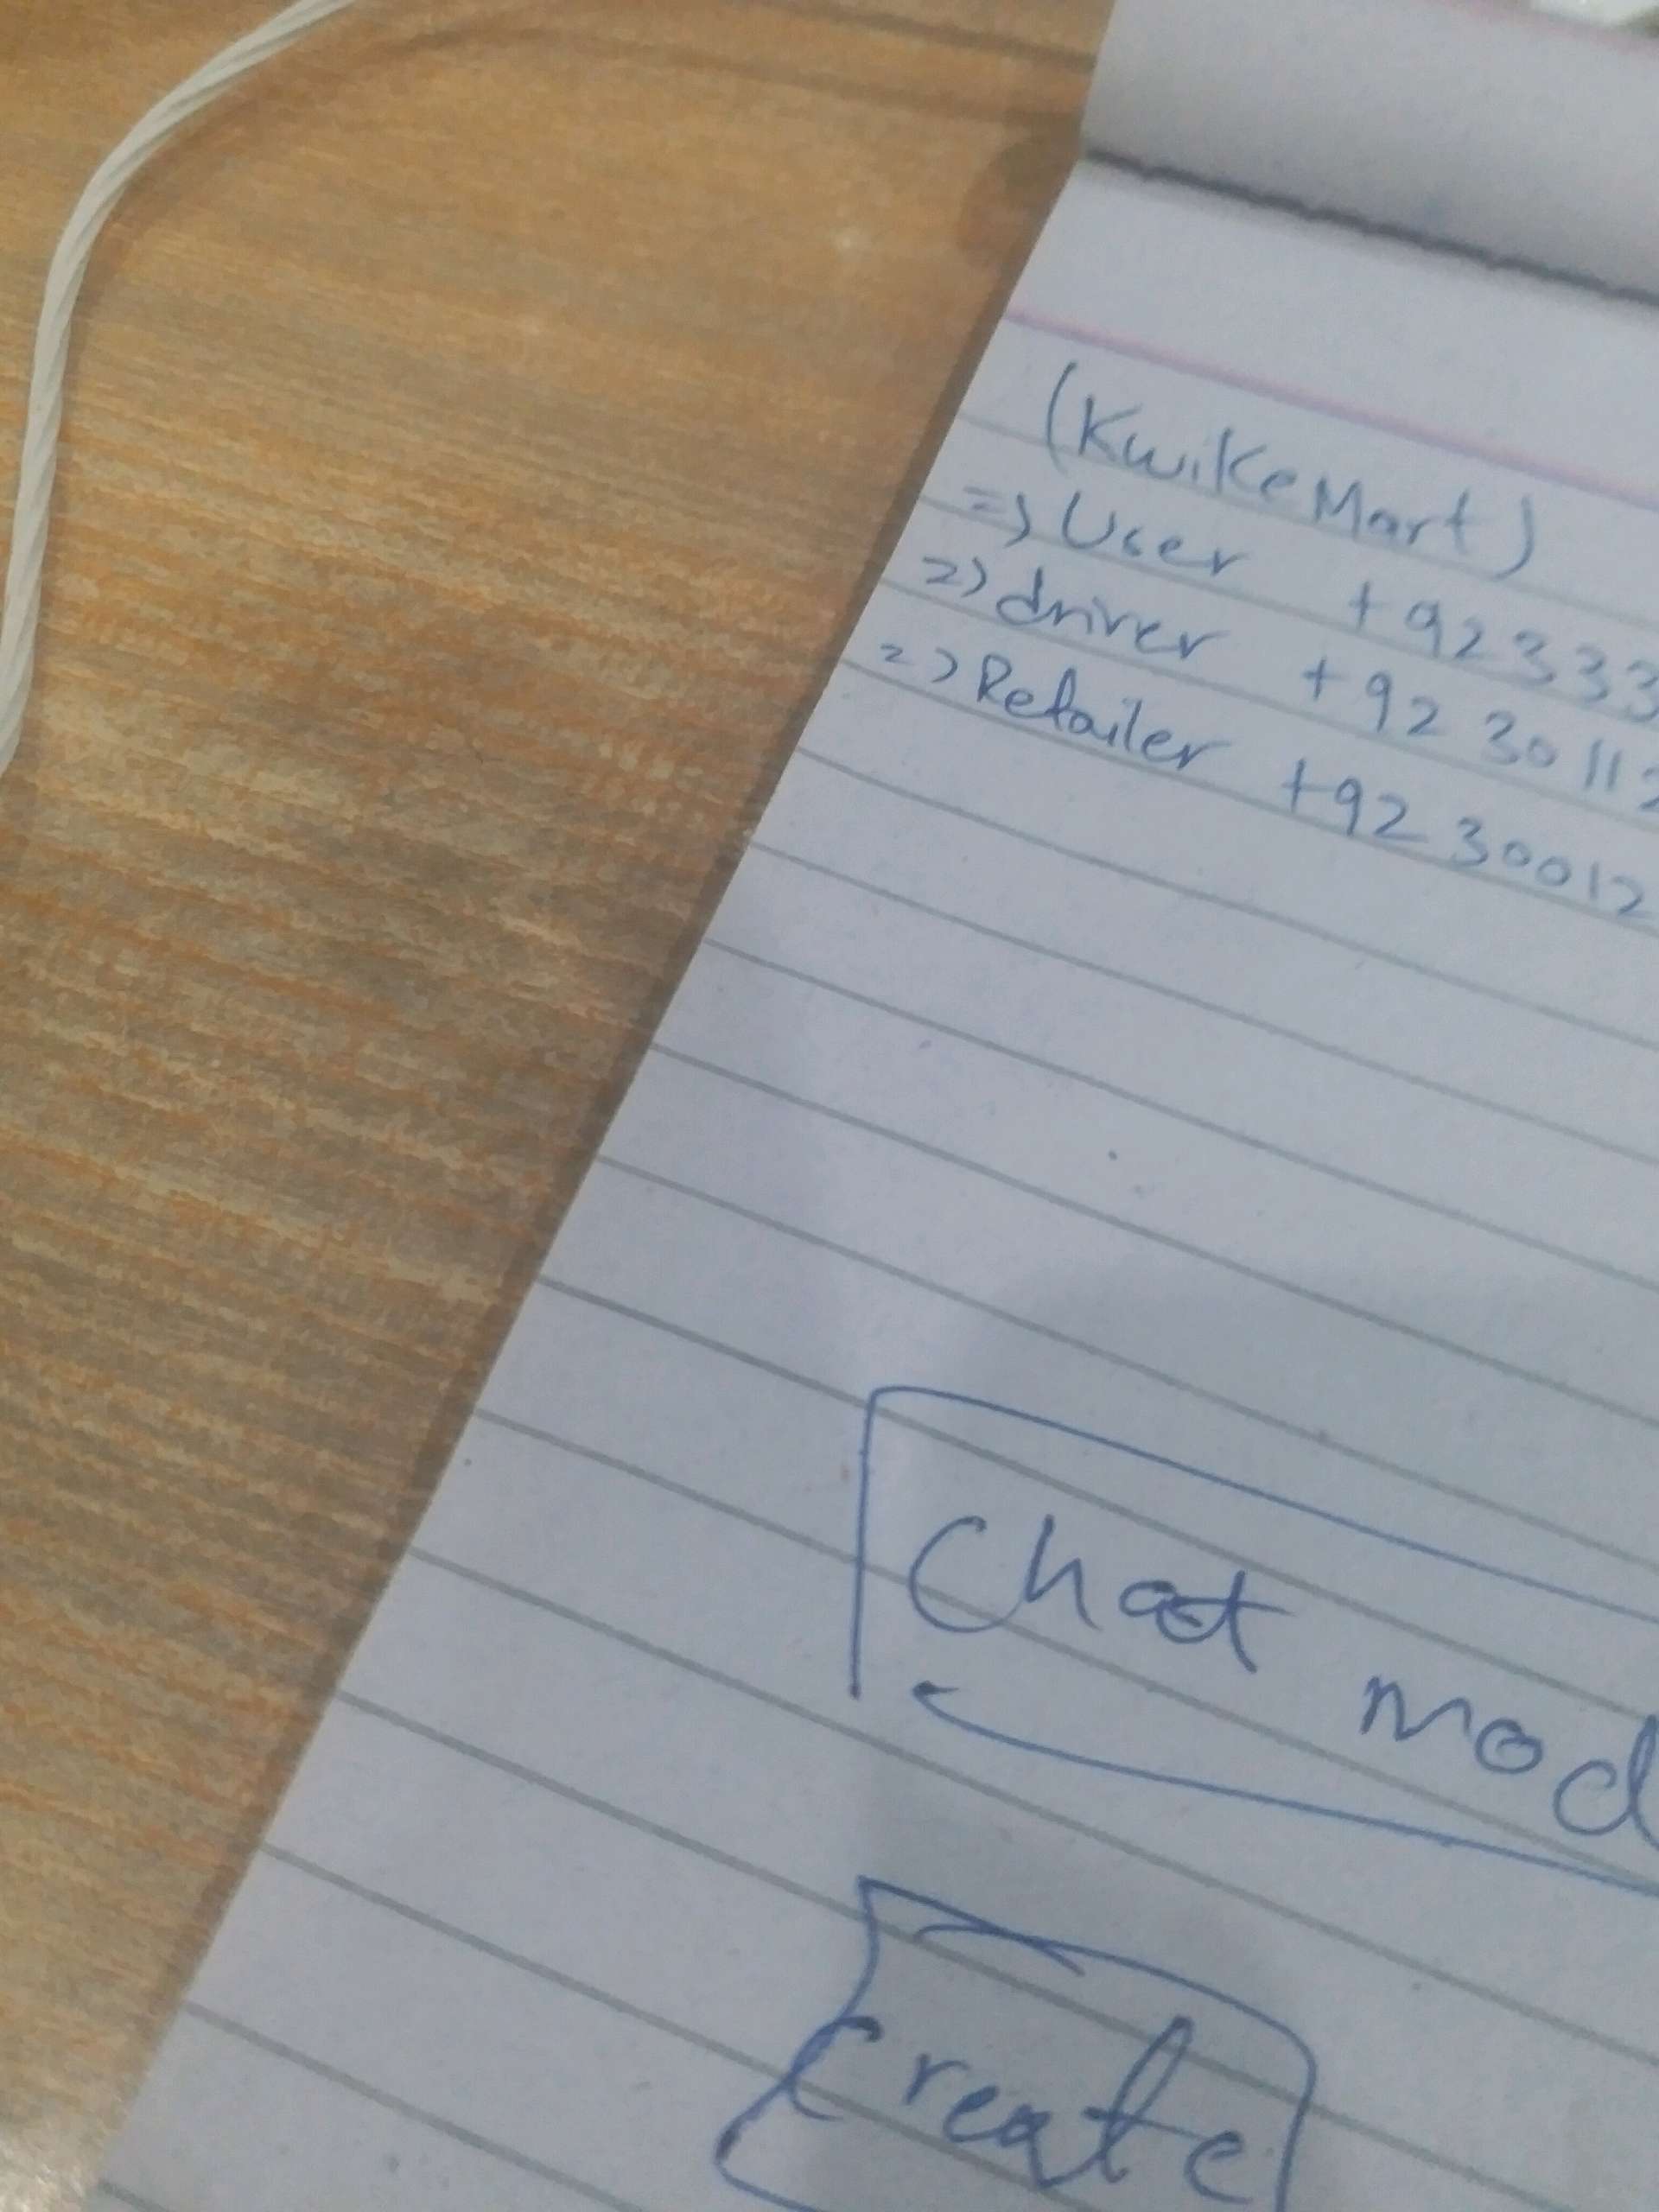 (KwikeMart)
=> User +92333
=> driver +9230112
=> Retailer +9230012
Chat mod
Create